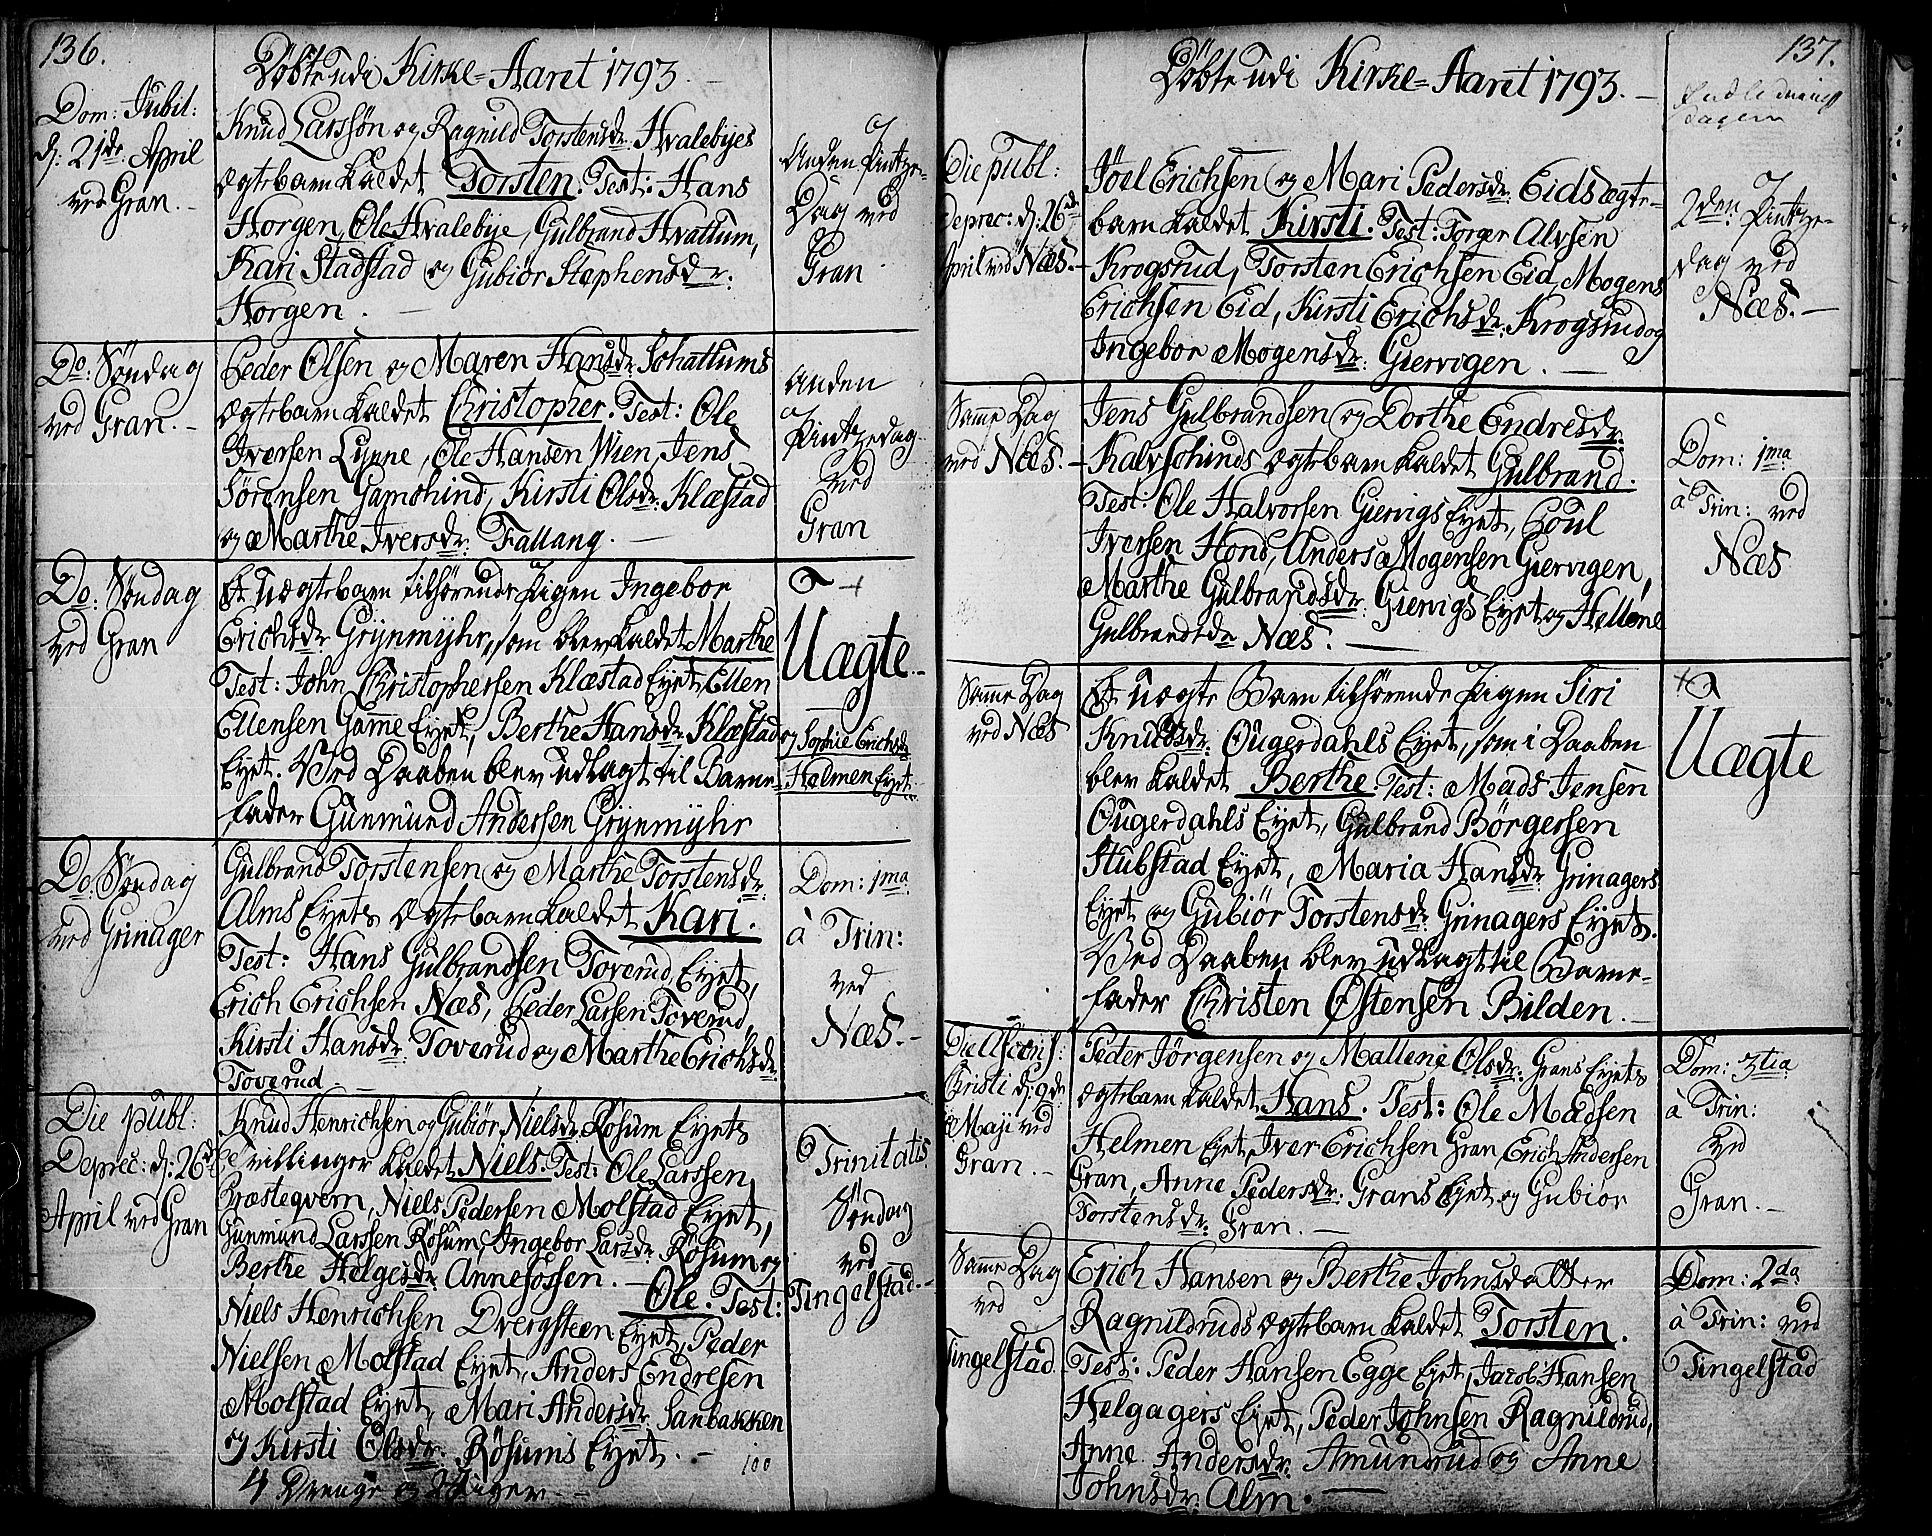 136.
Döbte udi Kirke-Aaret 1793.
Dom: Jubil:
d: 21de April
ved Gran.
Knud Larssøn og Ragnild Torstensdr: Hvalebyes
ægtebarn kaldet Torsten. Test: Hans
Horgen, Ole Hvalebye, Gulbrand Hvattum,
Kari Stadstad og Gubiör Stephensdr:
Horgen.
Anden Pintze-
Dag ved
Gran
Do: Søndag
ved Gran.
Peder Olsen og Maren Hansdr: Schattums
ægtebarn kaldet Christopher. Test: Ole
Iversen Lynne, Ole Hansen Wien, Jens
Sørensen Gamshind, Kirsti Olsdr: Klæstad
og Marthe Iversdr: Fallang.
Anden
Pintzedag
ved
Gran
Do: Søndag
ved Gran
Et uægte barn tilhørende Pigen Ingebor
Erichsdr: Grynmyhr, som blev kaldet Marthe
Test: John Christophersen Klæstad Eyet, Ellen
Ellensen Game Eyet, Berthe Hansdr: Klæstad
Eyet. Ved Daaben blev udlagt til Barne-
fader Gunmund Andersen Grynmyhr
Uægte
og Sophie Erichsdr
Hælmen Eyet
Do: Søndag
ved Grinager
Gulbrand Torstensen og Marthe Torstensdr:
Alms Eyets ægtebarn kaldet Kari.
Test: Hans Gulbrandsen Toverud Eyet,
Erich Erichsen Næs, Peder Larsen Toverud,
Kirsti Hansdr: Toverud og Marthe Erichsdr:
Toverud
Dom: 1ma
à Trin:
ved
Næs.
Die publ:
Deprec: d: 26de
April ved Gran
Knud Henrichsen og Gubiör Nielsdr: Røsum Eyets
Tvillinger kaldet Niels. Test: Ole Larssen
Præstegvern, Niels Pedersen Molstad Eyet,
Gunmund Larssen Røsum, Ingebor Larsdr: Røsum og
Berthe Helgesdr: Annefossen. Ole. Test:
Niels Henrichsen Dvergsteen Eyet, Peder
Nielsen Molstad Eyet, Anders Endresen
Molstad Eyet, Mari Andersdr: Sanbakken
og Kirsti Olsdr: Røsums Eyet.
100
4 Drenge og 2 Piger
Trinitatis
Søndag
ved
Tingelstad.
137.
Döbte udi Kirke-Aaret 1793.
Die publ:
Deprec: d: 26de
April ved Næs.
Joel Erichsen og Mari Pedersdr: Eids ægte-
barn kaldet Kirsti. Test: Torger Alvsen
Krogsrud, Torsten Erichsen Eid, Mogens
Erichsen Eid, Kirsti Erichsdr: Krogsrud og
Ingebor Mogensdr: Giervigen.
2den Pintze-
dag ved
Næs.
Samme Dag
ved Næs.
Jens Gulbrandsen og Dorthe Endresdr:
Kalvschinds ægtebarn kaldet Gulbrand.
Test: Ole Halvorsen Giervigs Eyet, Poul
Iversen Hond, Anders Mogensen Giervigen,
Marthe Gulbrandsdr: Giervigs Eyet og Hellene
Gulbrandsdr Næs.
Dom: 1ma
à Trin: ved
Næs
Samme Dag
ved Næs
Et uægte Barn tilhørende Pigen Siri
Knudsdr: Ougerdahls Eyet, som i Daaben
blev kaldet Berthe. Test: Mads Jensen
Ougerdahls Eyet, Gulbrand Börgersen
Stubstad Eyet, Maria Hansdr: Grinagers
Eyet og Gubiör Torstensdr: Grinagers Eyet.
Ved Daaben blev udlagt til Barne-
fader Christen Østensen Bilden.
Uægte
Die Ascens:
Christi d: 9de
Maji ved
Gran.
Peder Jørgensen og Mallene Olsdr: Grans Eyets
ægtebarn kaldet Hans. Test: Ole Madsen
Helmen Eyet, Iver Erichsen Gran, Erich Andersen
Gran, Anne Pedersdr: Grans Eyet og Gubiör
Torstensdr: Gran.
Dom: 3tia
à Trin:
ved
Gran.
Samme Dag
ved
Tingelstad
Erich Hansen og Berthe Johnsdatter
Ragnildruds ægtebarn kaldet Torsten.
Test: Peder Hansen Egge Eyet, Jacob Hansen
Helgagers Eyet, Peder Johnsen Ragnildrud,
Anne Andersdr: Amundrud og Anne
Johnsdr: Alm.
Dom: 2da
à Trin: ved
Tingelstad